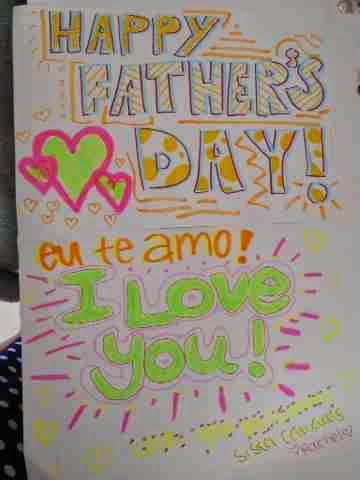 HAPPY
FATHER'S
DAY!
eu te amo!
I Love
You!
Rachel